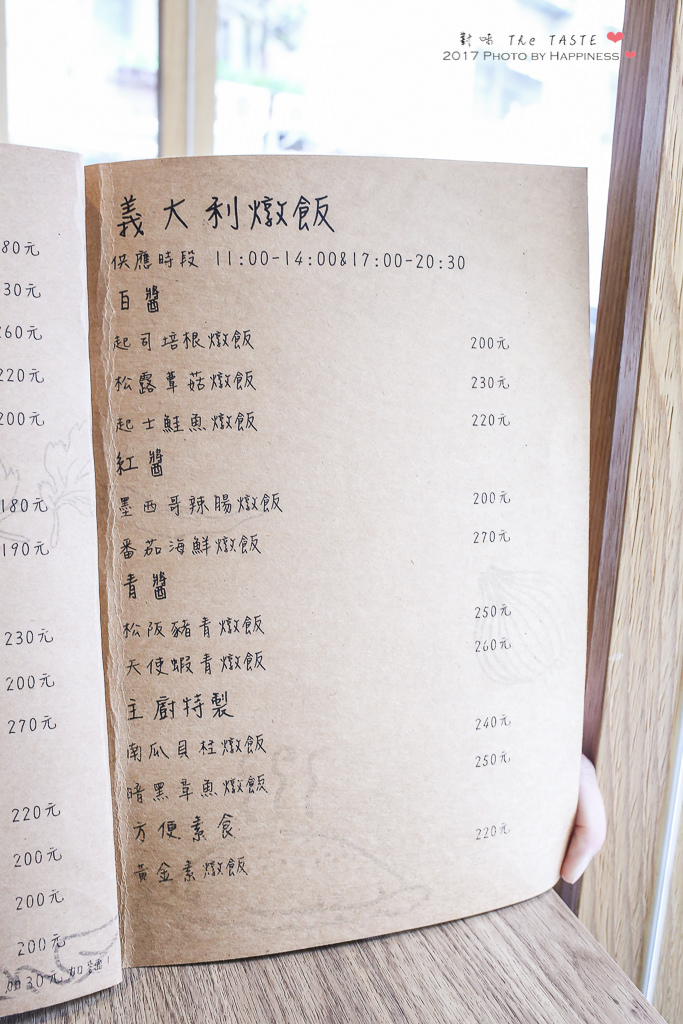 對味 The TASTE
2017 PHOTO BY HAPPINESS
80元
30元
260元
220元
200元
180元
190元
230元
200元
270元
220元
200元
200元
200元
加30元加麵!
義大利燉飯
供應時段 11:00-14:00&17:00-20:30
白醬
起司培根燉飯 200元
松露蕈菇燉飯 230元
起士鮭魚燉飯 220元
紅醬
墨西哥辣腸燉飯 200元
番茄海鮮燉飯 270元
青醬
松阪豬青燉飯 250元
天使蝦青燉飯 260元
主廚特製
南瓜貝柱燉飯 240元
暗黑章魚燉飯 250元
方便素食
黃金素燉飯 220元